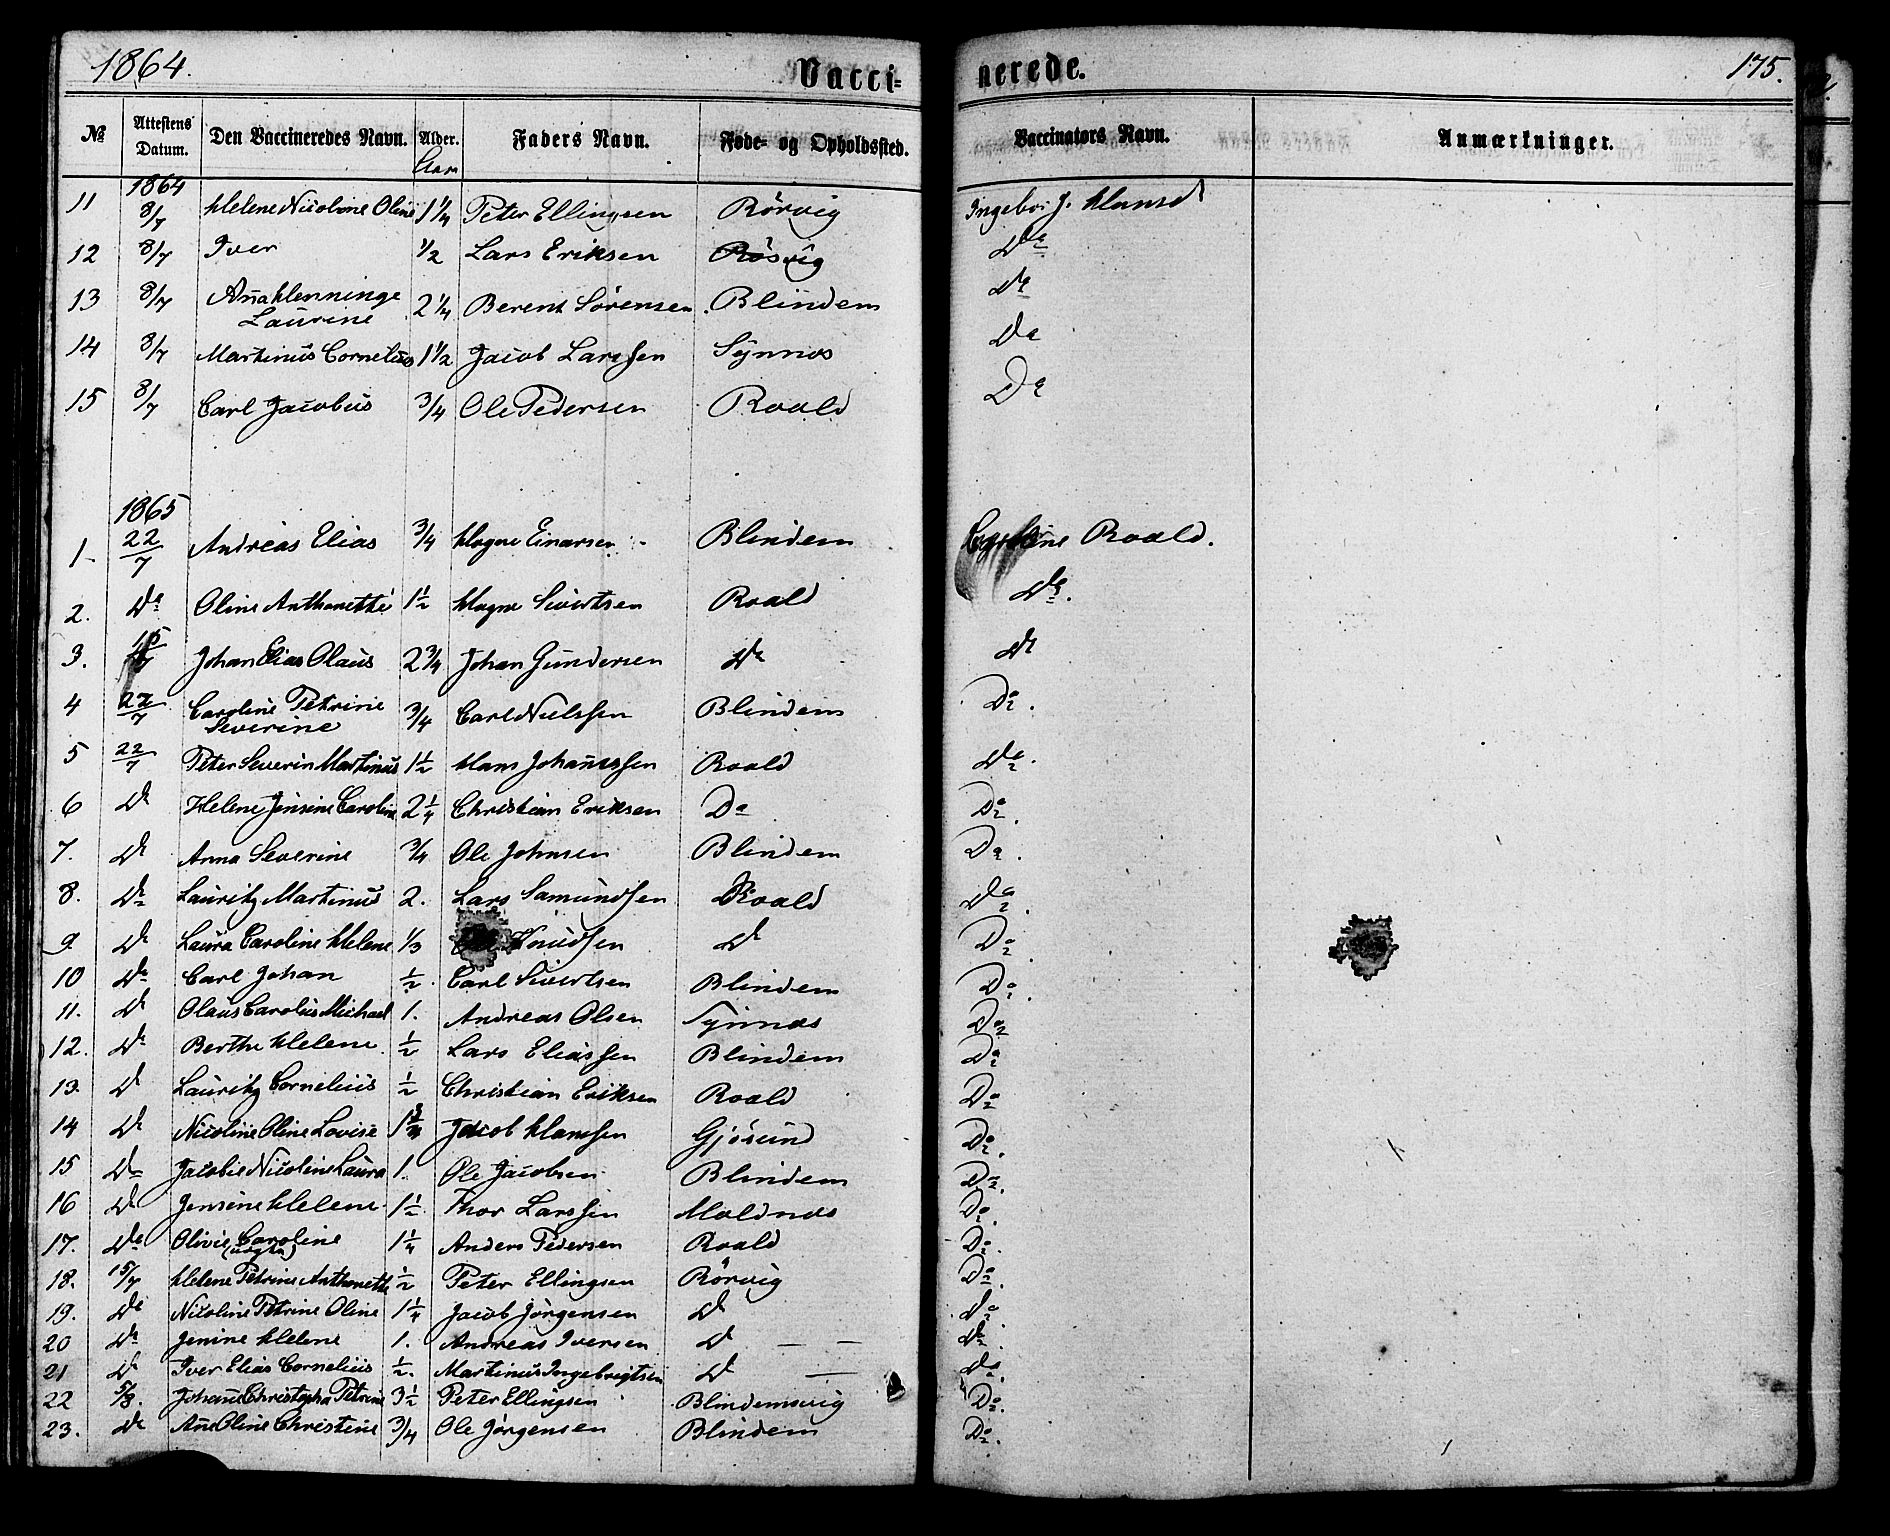 1864. Vacci- nerede. 175.
№ Attestens Datum. Den Vaccineredes Navn. Alder. Faders Navn. Føde- og Opholdssted. Vaccinators Navn. Anmærkninger.
Aar
1864
11 8/7 Helene Nicoline Oline 1 1/4 Peter Ellingsen Rörvig Ingebor J. Hansd
12 8/7 Iver 1/2 Lars Eriksen Rösvig Do
13 8/7 Ana Henninge Laurine 2 1/4 Berent Sörensen Blindem Do
14 8/7 Martinus Cornelius 1 1/2 Jacob Larssen Synnes Do
15 8/7 Carl Jacobus 3/4 Ole Pedersen Roald Do
1865
1 22/7 Andreas Elias 3/4 Mogne Einarsen Blindem Caroline Roald.
2. Do Oline Anthonette 1 1/2 Mogne Sivertsen Roald Do.
3. 15/7 Johan Elias Olaus 2 3/4 Johan Gundersen Do Do
4 22/7 Caroline Petrine Severine 3/4 Carl Nielssen Blindem Do.
5 22/7 Peter Severin Martinus 1 1/2 Hans Johanssen Roald Do.
6 Do Helene Jensine Caroline 2 1/4 Christian Eriksen Do Do.
7. Do Anna Severine 3/4 Ole Johnsen Blindem Do.
8. Do Lauritz Martinus 2. Lars Samundsen Roald Do.
9 Do Laura Caroline Helene 1/3 Knudsen Do Do.
10 Do Carl Johan 1/2 Carl Sivertsen Blindem Do.
11. Do Olaus Carolus Michael 1. Andreas Olsen Synnes Do
12. Do Berthe Helene 1/2 Lars Eliassen Blindem Do
13. Do Lauritz Cornelius 1/2 Christian Eriksen Roald Do
14 Do Nicoline Oline Lovise 1 Jacob Hanssen Gjösund Do.
15 Do Jacobie Nicoline Laura 1. Ole Jacobsen Blindem Do.
16 Do Jensine Helene 1 1/2 Thor Larssen Moldnes Do.
17. Do Olivie Caroline 1 1/4 Anders Pedersen Roald Do.
18. 15/7 Helene Petrine Anthonette 1/2 Peter Ellingsen Rörvig Do.
19. Do Nicoline Petrine Oline 1 1/4 Jacob Jörgensen Do Do.
20 Do Jenine Helene 1. Andreas Iversen Do — — Do.
21 Do Iver Elias Cornelius 1/2. Martinus Ingebrigtsen Do — Do.
22 5/8. Johane Christopha Petrine 3 1/2 Peter Ellingsen Blindemsvig Do.
23. Do Ane Oline Christine 3/4 Ole Jörgensen Blindem Do.